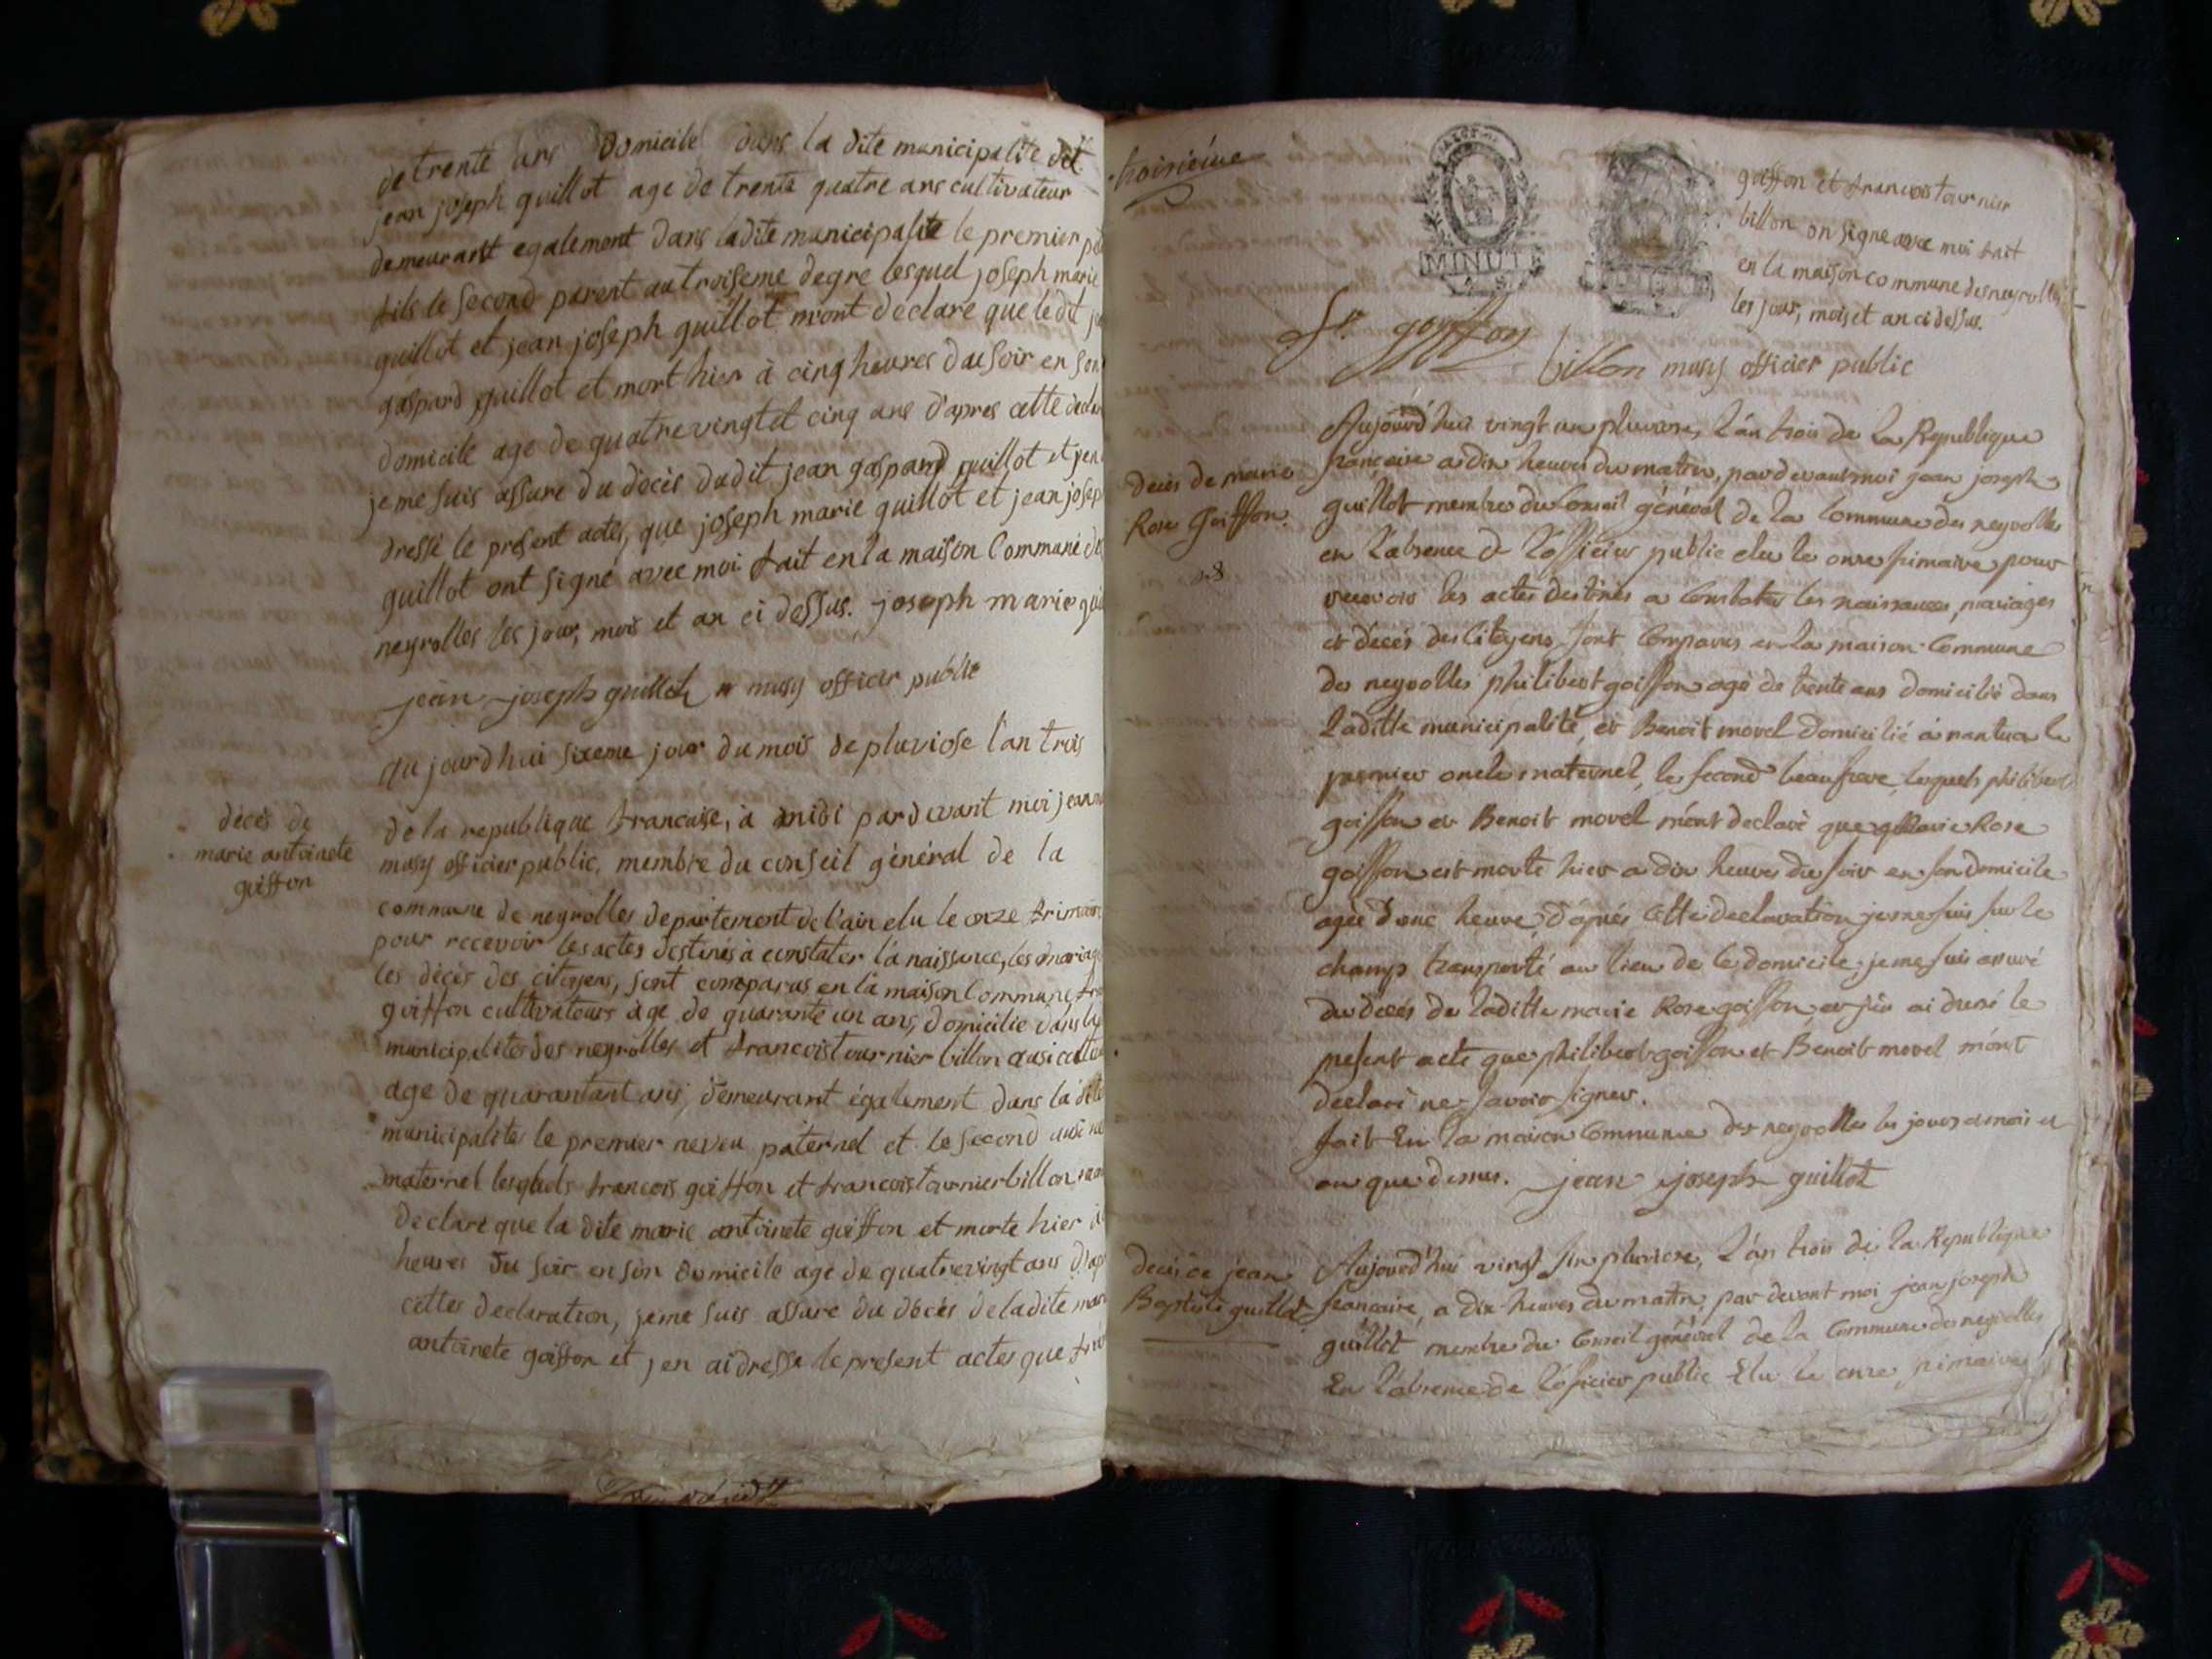 de trente ans domicile dans la dite municipalite det
jean joseph guillot age de trente quatre ans cultivateur
demeurant egalement dans ladite municipalite le premier
fils le second parent au troiseme degre lesquel joseph marie
guillot et jean joseph guillot m'ont declare que ledit
gaspard guillot et mort hier à cinq heures du soir en son
domicile age de quatrevingt et cinq ans d'apres cette
je me suis assure du décès dudit jean gaspard guillot et jen
dressé le present actes, que joseph marie guillot et jean josep
guillot ont signé avec moi fait en la maison Commune des
neyrolles les jour, mois et an ci dessus. joseph marie
jean joseph guillot musy officier public
Au jourdhui sixeme jour du mois de pluviose l'an trois
décès de
marie antoinete
goiffon
de la republique francaise, à midi pardevant moi jean
musy officier public, membre du conseil général de la
commune de neyrolles departement de l'ain elu le onze frimaire
pour recevoir les actes destinés à constater la naissance, les mariage
les décès des citoyens, sont comparus en la maison Commune
goiffon cultivateurs age de quarante un ans, domicilie dans la
municipalites des neyrolles et francois tournier billon ausi
age de quarantant ans, demeurant également dans la dite
municipalites le premier neveu paternel et le second ausi
maternel lesquels francois goiffon et francois tournier billon
declaré que la dite marie antoinete goiffon et morte hier
heures du soir en son domicile age de quatrevingt ans
cettes declaration, jeme suis assure du décès deladite
antoinete goiffon et jen ai dresse le present actes que
troisieme
MINUTE
goiffon et francois tournier
billon on signe avec moi fait
en la maison commune des neyrolles
les jour, mois et an ci dessus.
fr goiffon
billon musy officier public
Aujourd'hui vingt un pluviose, l'an trois de la Republique
Décès de marie
Rose Goiffon.
francaise a dix heures du matin, pardevant moi jean joseph
guillot membre du Conseil général de la Commune des neyrolles
en l'absence d l'officier public elu le onze frimaire pour
recevoir les actes destinés a Constater les naissances, mariages
et décés des Citoyens sont Comparus en la maison Commune
des neyrolles philibert goiffon agé de trente ans domicilié dans
laditte municipalité, et Benoit morel Domicilié a nantua le
premier oncle maternel, le second beaufrere, lesquels philibert
goiffon et Benoit morel m'ont declaré que marie Rose
goiffon est morte hier a dix heures du soir en son domicile
agée d'une heure, d'aprés cette declaration je me suis sur le
champ transporté au lieu de le domicile, je me suis assuré
du décés de laditte marie Rose goiffon et j'en ai dressé le
present acte que philibert goiffon et Benoit morel m'ont
declaré ne savoir signer.
fait En la maison Commune des neyrolles les jours mois et
an que dessus. jean joseph guillot
Decès de jean
Baptiste guillot
Aujourd'hui vingt six pluviose, l'an trois de la Republique
francaise, a dix heures du matin, par devant moi jean joseph
guillot membre du Conseil général de la Commune des neyrolles
En l'absence de l'officier public Elu le onze frimaire